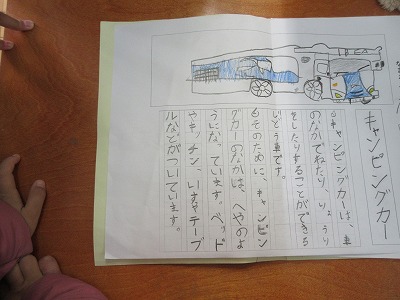 キャンピングカー
キャンピングカーは、車
のなかでねたり、りょうり
をしたりすることができる
じどう車です。
そのために、キャンピン
グカーのなかは、へやのよ
うになっています。ベッド
やキッチン、いすテーブ
ルなどがついています。